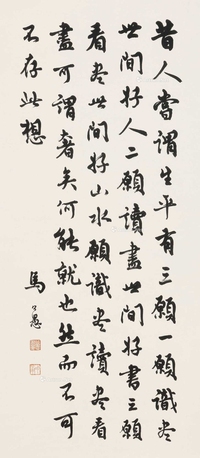 昔人嘗謂生平有三願一願識盡
世間好人二願讀盡世間好書三願
看盡世間好山水願識盡讀盡看
盡可謂奢矣何能就也然而不可
不存此想
馬公愚